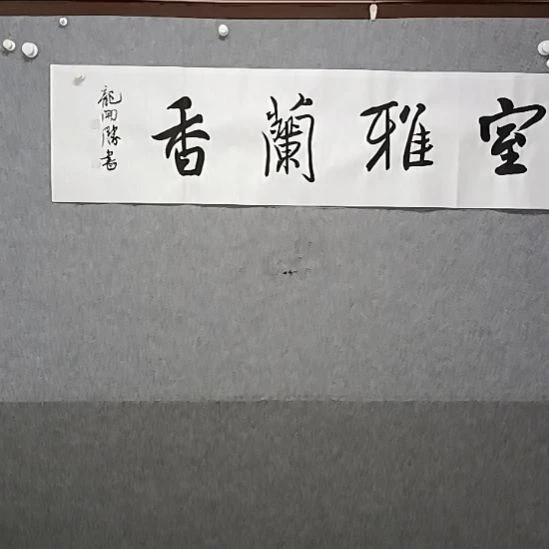 室雅蘭香
龍開勝書